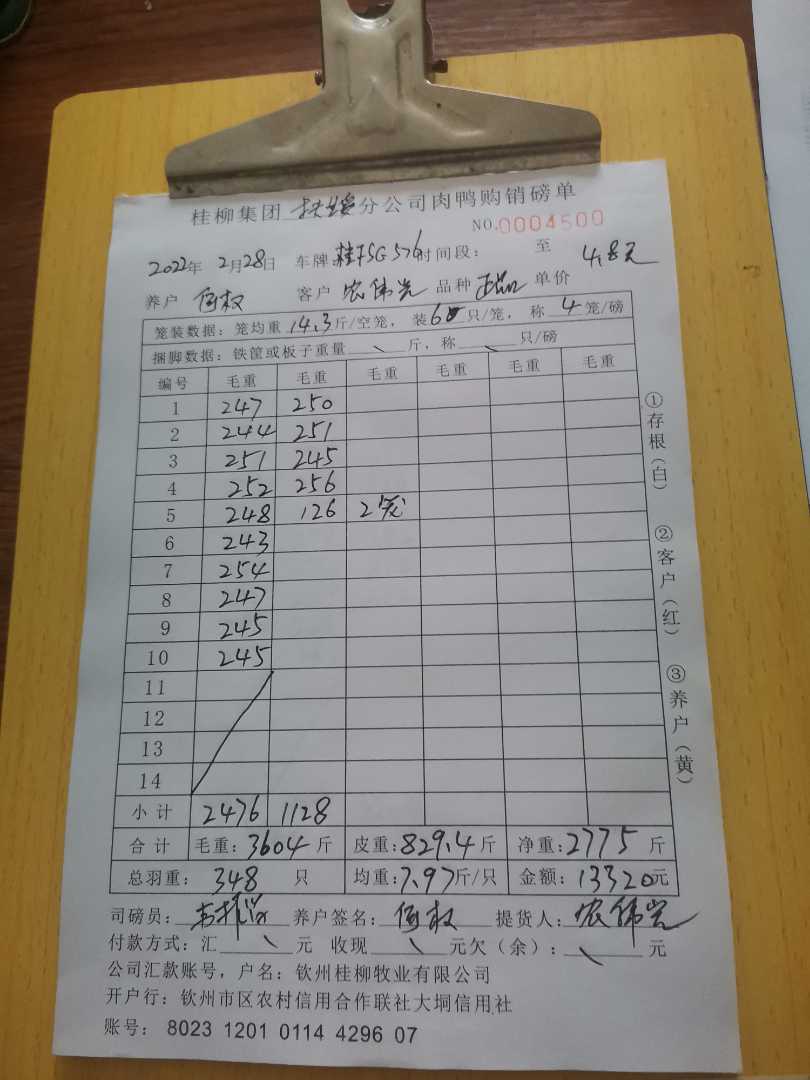 桂柳集团 扶绥 分公司肉鸭购销磅单
NO.0004500
2022年 2月28日 车牌:桂FSG576 时间段: 至
养户 何权 客户 农伟光 品种 正品 单价 4.8元
笼装数据: 笼均重 14.3 斤/空笼, 装 6 只/笼, 称 4 笼/磅
捆脚数据: 铁筐或板子重量 斤, 称 只/磅
编号 毛重 毛重 毛重 毛重 毛重 毛重
1 247 250
2 244 251
3 251 245
4 252 256
5 248 126 2笼
6 243
7 254
8 247
9 245
10 245
11
12
13
14
小计 2476 1128
合计 毛重:3604斤 皮重:829.4斤 净重:2775斤
总羽重: 348 只 均重:7.97斤/只 金额:13320元
司磅员: 养户签名: 何权 提货人: 农伟光
付款方式: 汇 元 收现 元欠(余): 元
公司汇款账号, 户名: 钦州桂柳牧业有限公司
开户行: 钦州市区农村信用合作联社大垌信用社
账号: 8023 1201 0114 4296 07
①存根(白)
②客户(红)
③养户(黄)